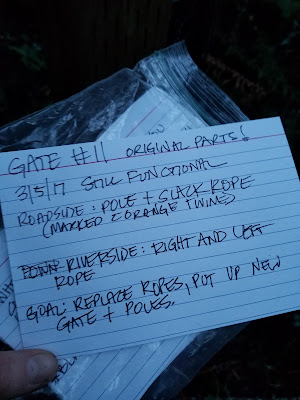 GATE #11 ORIGINAL PARTS!
3/5/17 STILL FUNCTIONAL
ROADSIDE: POLE + SLACK ROPE
(MARKED C ORANGE TWINE)
RIVERSIDE: RIGHT AND LEFT
ROPE
GOAL: REPLACE ROPES, PUT UP NEW
GATE + POLES.